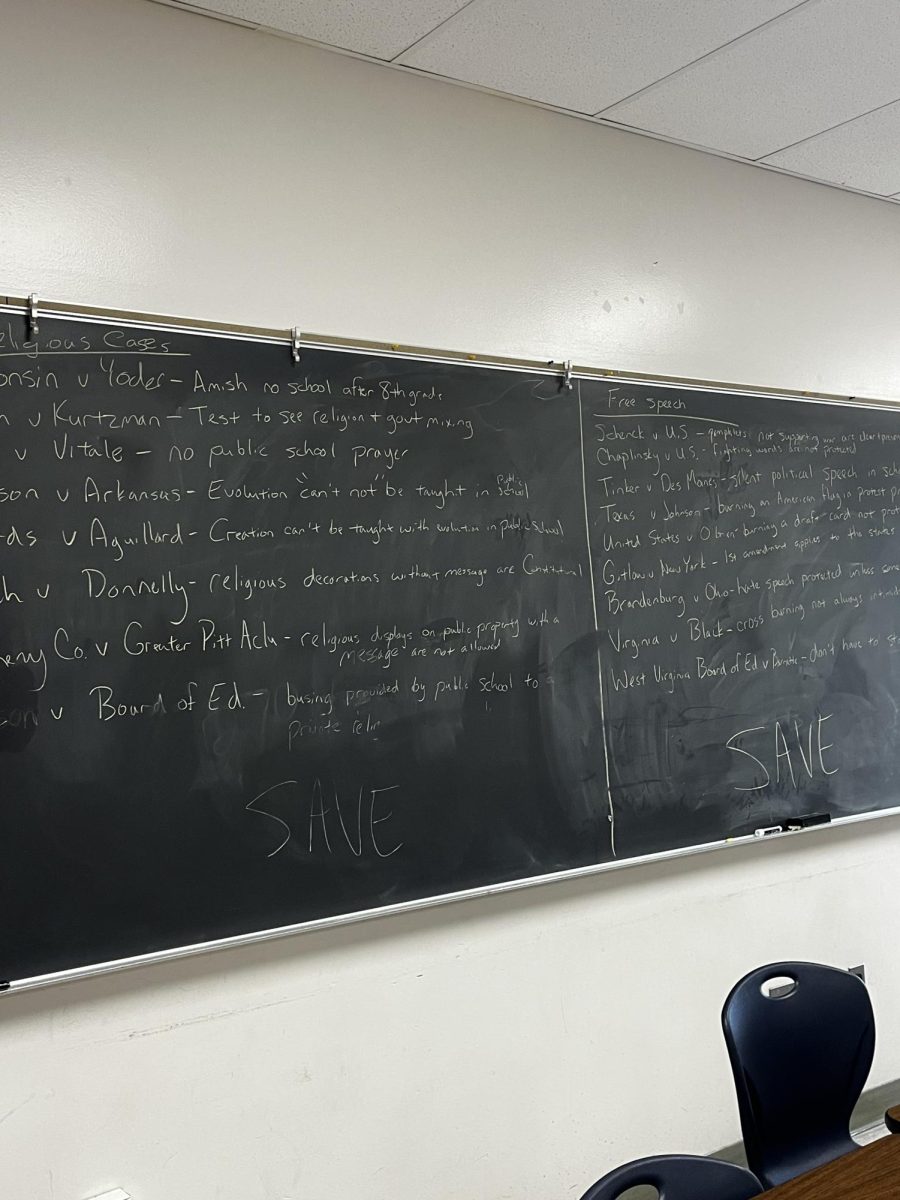 eligious Cases
onsin v Yoder - Amish no school after 8th grade
n v Kurtzman - Test to see religion + govt mixing
v Vitale - no public school prayer
son v Arkansas - Evolution "can't not" be taught in public school
ds v Aguillard - Creation can't be taught with evolution in public school
ch v Donnelly - religious decorations without message are Constitutional
heny Co. v Greater Pitt Aclu - religious displays on public property with a
message are not allowed
son v Board of Ed. - busing provided by public school to a
private relig
SAVE
Free speech
Schenck v U.S - pamphlets not supporting war are clear + presen
Chaplinsky v U.S. - Fighting words are not protected
Tinker v Des Moines - silent political speech in scho
Texas v Johnson - burning an American flag in protest pr
United States v Obrien - burning a draft card not prot
Gitlow v New York - 1st amendment applies to the states
Brandenburg v Ohio - hate speech protected unless
Virginia v Black - cross burning not always intimid
West Virginia Board of Ed v - don't have to
SAVE